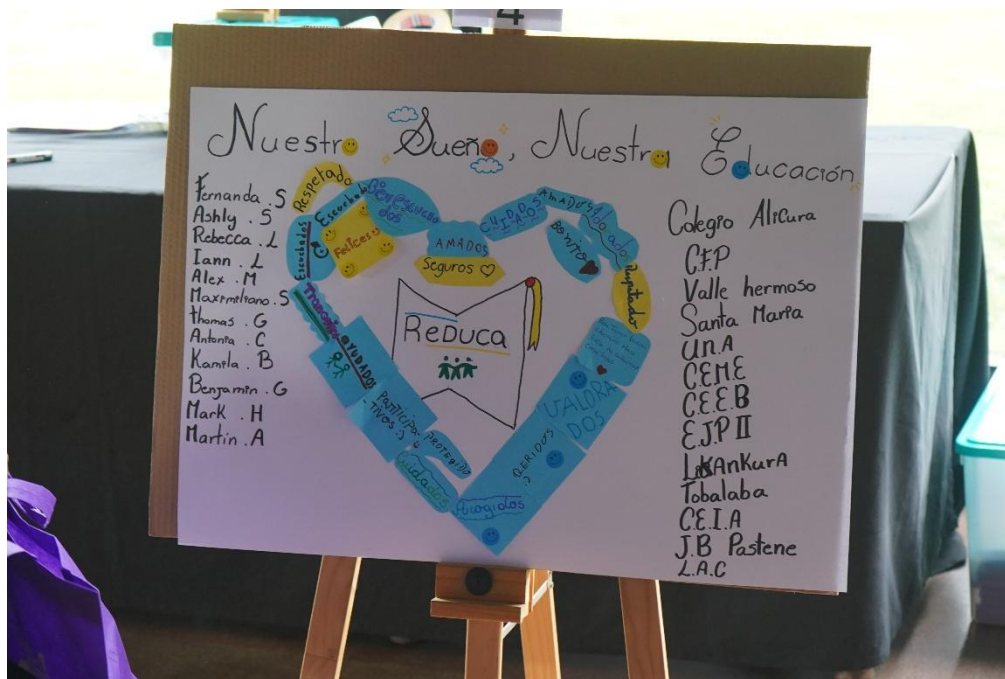 4
Nuestro Sueño, Nuestra Educación
Fernanda . S
Ashly . S
Rebecca . L
Iann . L
Alex . M
Maximiliano . S
Thomas . G
Antonia . C
Kamila . B
Benjamin . G
Mark . H
Martin . A
Respetado
Escuchado
Escuchados
Felices
Bienescucha
dos
AMADOS
Seguros
CUIDADOS
AMADOS
Bonito
Respetados
Tranquilos
AYUDADOS
Participa
tivos :)
PROTEGIDO
Cuidados
Acogidos
QERIDOS
VALORA
DOS
ReDUCA
Colegio Alicura
C.F.P
Valle hermoso
Santa Maria
U.N.A
CEME
C.E.E.B
E.J.P II
LikAnkurA
Tobalaba
C.E.I.A
J.B Pastene
L.A.C